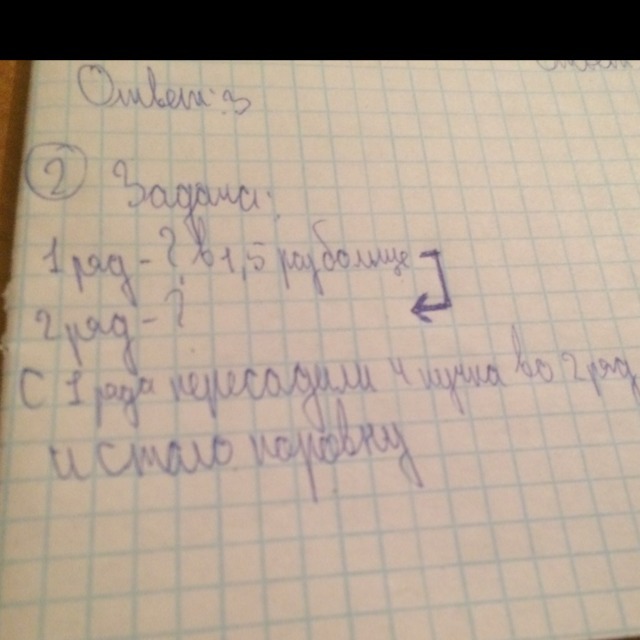 Ответ: 3
2 Задача.
1 ряд - ? в 1,5 раз больше
2 ряд - ?
С 1 ряда пересадили 4 куста во 2 ряд
и стало поровну